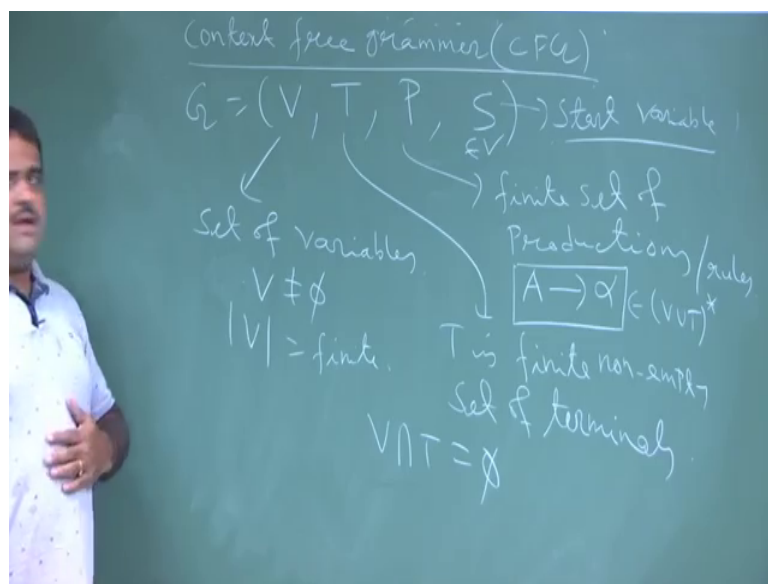 Context free grammer (CFG)
G = (V, T, P, S) → Start variable
∈V
Set of variables.
V ≠ ϕ
|V| = finite.
finite set of
Productions/rules
A → α ∈ (V∪T)*
T is finite non-empty
set of terminals.
V∩T = ϕ